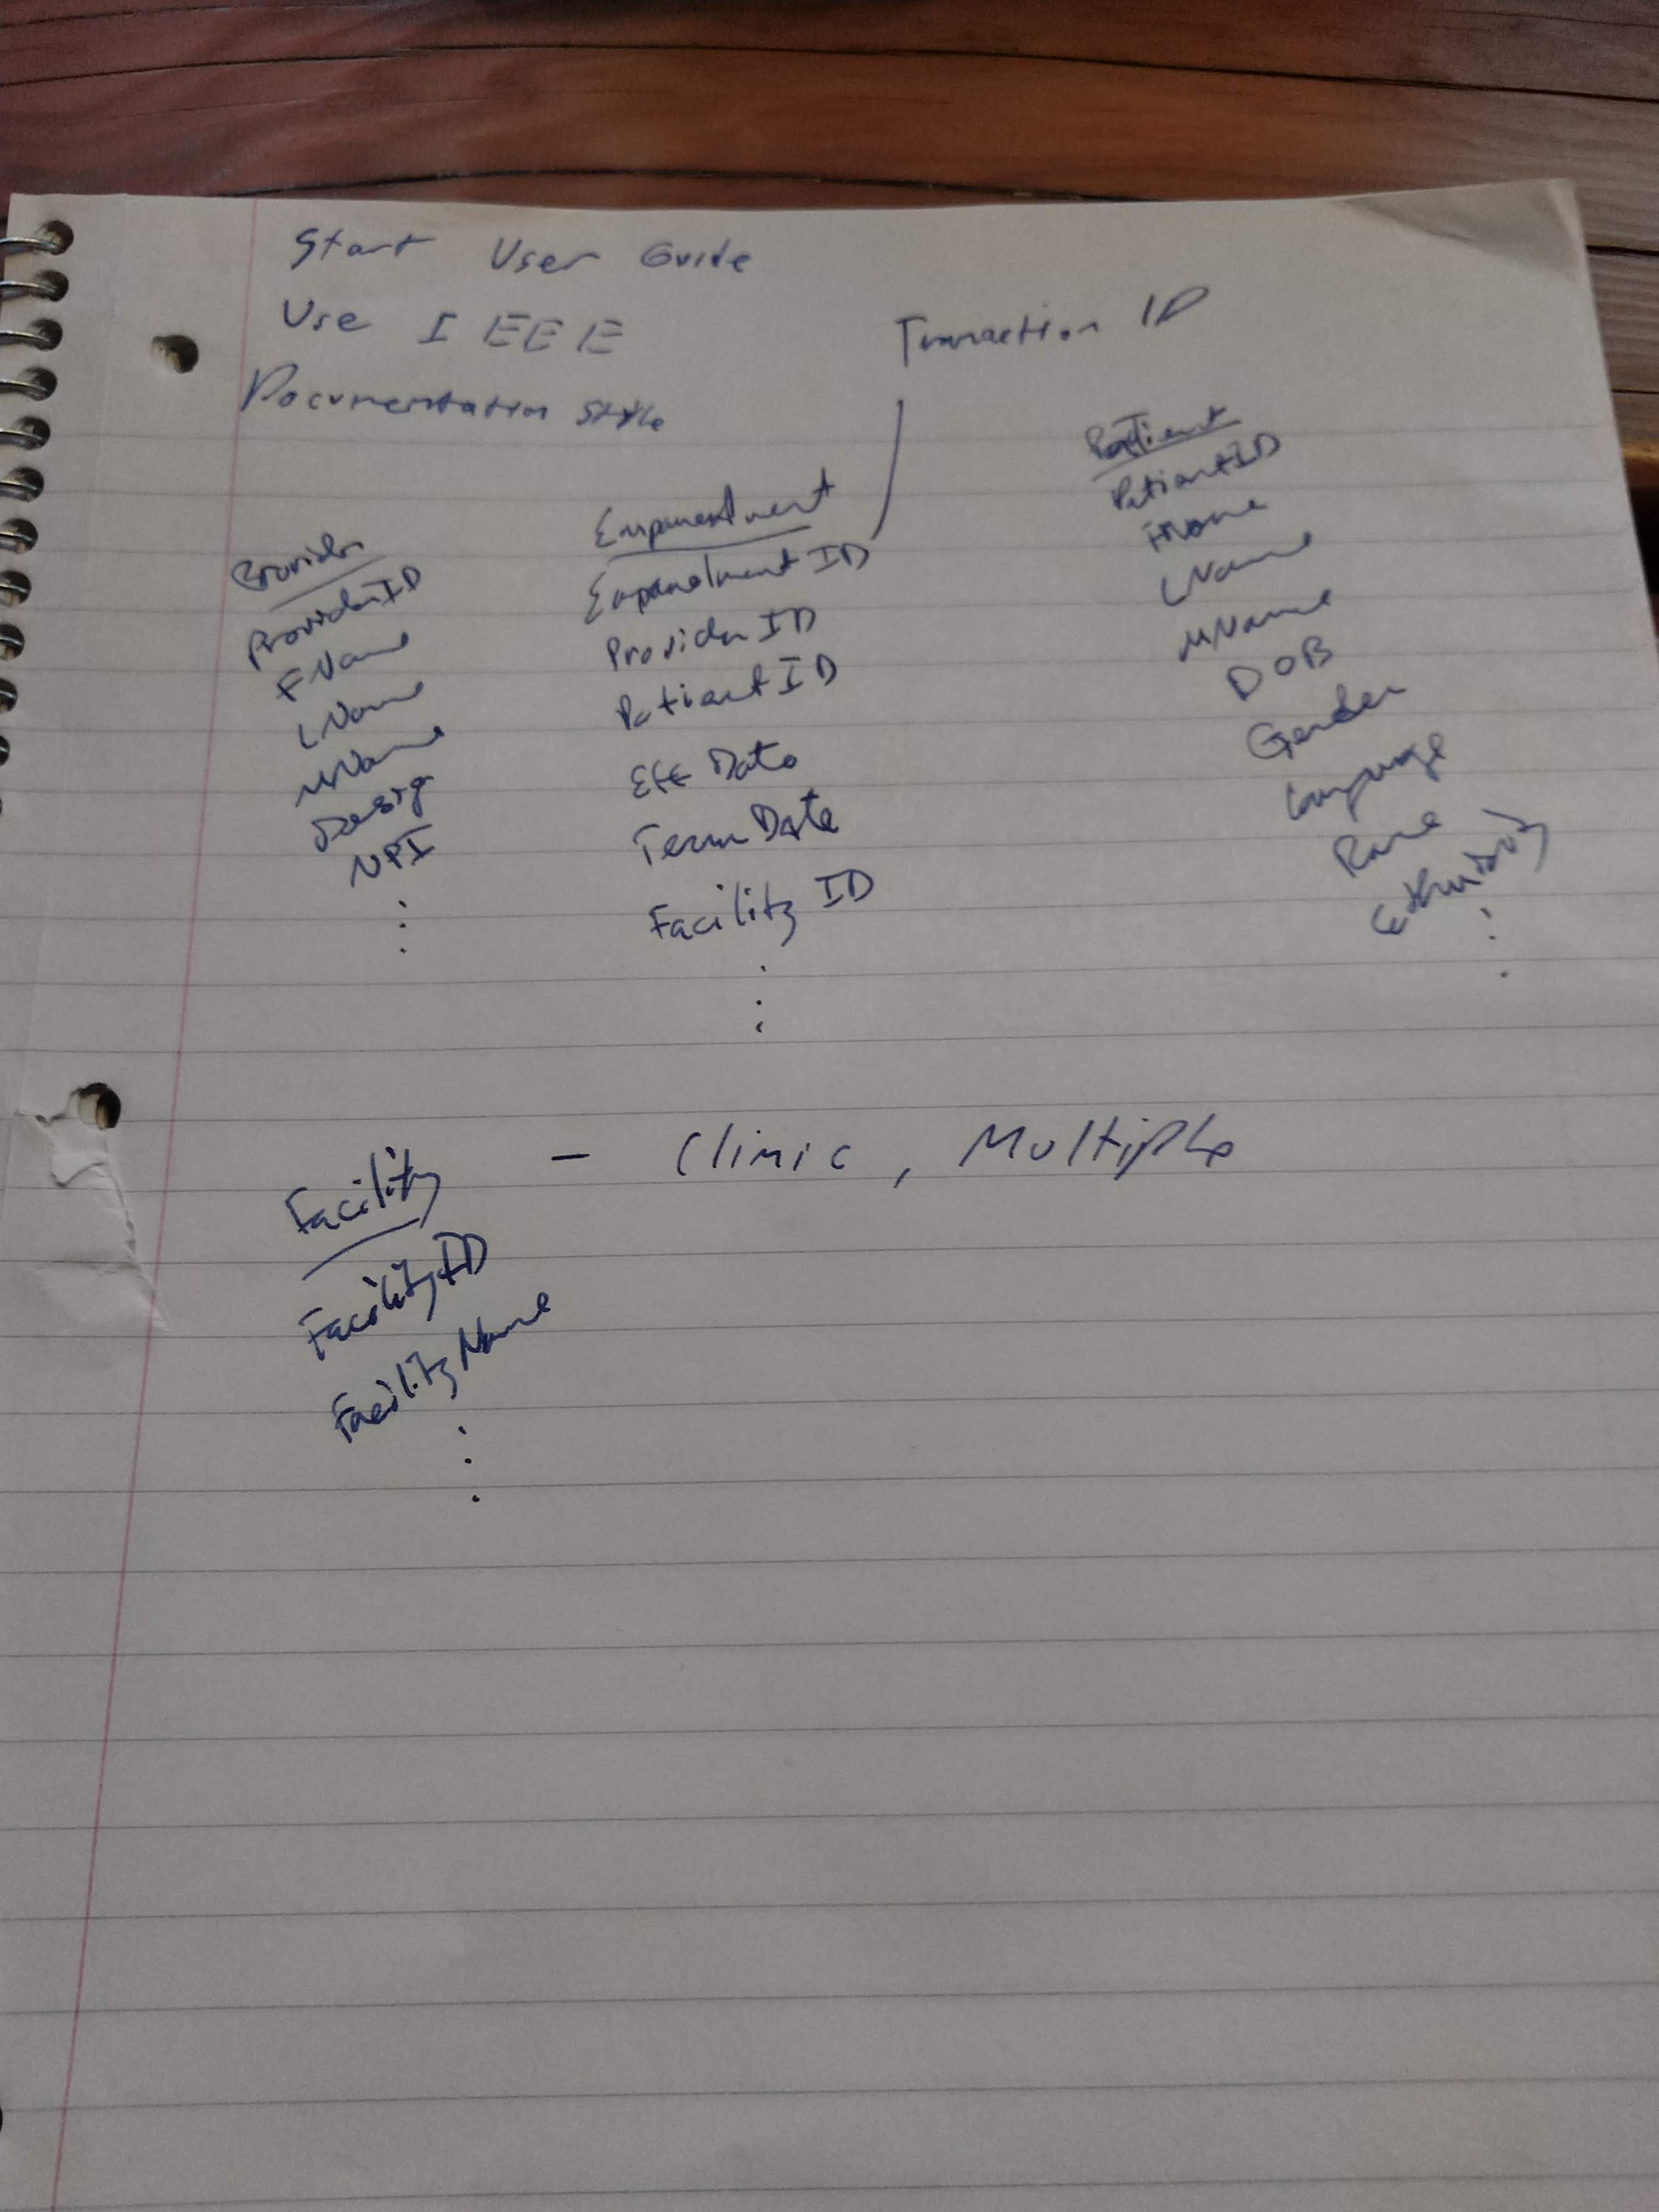 Start User Guide
Use IEEE
Documentation Style
Transaction ID
Provider
ProviderID
FName
LName
MName
Desig
NPI
Empanelment
Empanelment ID
Provider ID
Patient ID
Eff Date
Term Date
Facility ID
Patient
PatientID
FName
LName
MName
DOB
Gender
Language
Race
Ethnicity
Facility - Clinic, Multiple
FacilityID
Facility Name